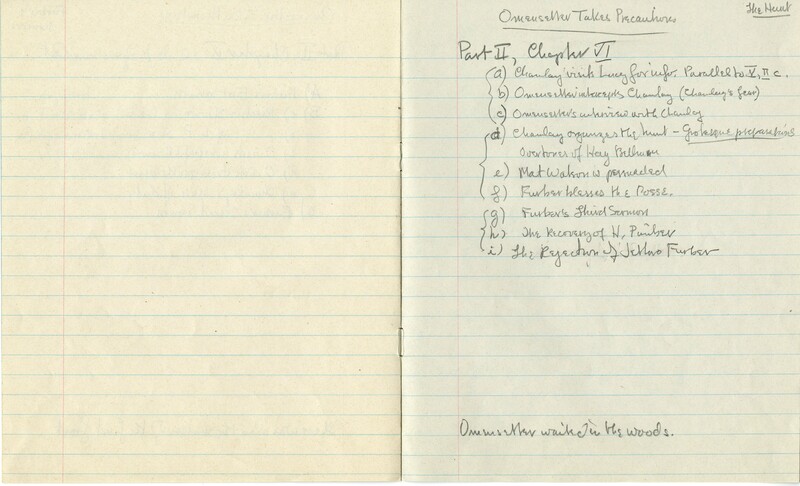 The Hunt
Omensetter Takes Precautions
Part II, Chapter VI
a) Chamlay visits Lucy for info. Parallel to V, II c.
b) Omensetter intercepts Chamlay (Chamlay's fear)
c) Omensetter's interview with Chamlay
d) Chamlay organizes the hunt – Grotesque preparations
Overtones of Hog Bellman
e) Mat Watson is persuaded
f) Furber blesses the Posse.
g) Furber's Third Sermon
h) The Recovery of H. Pimber
i) The Rejection of Jethro Furber
Omensetter waited in the woods.